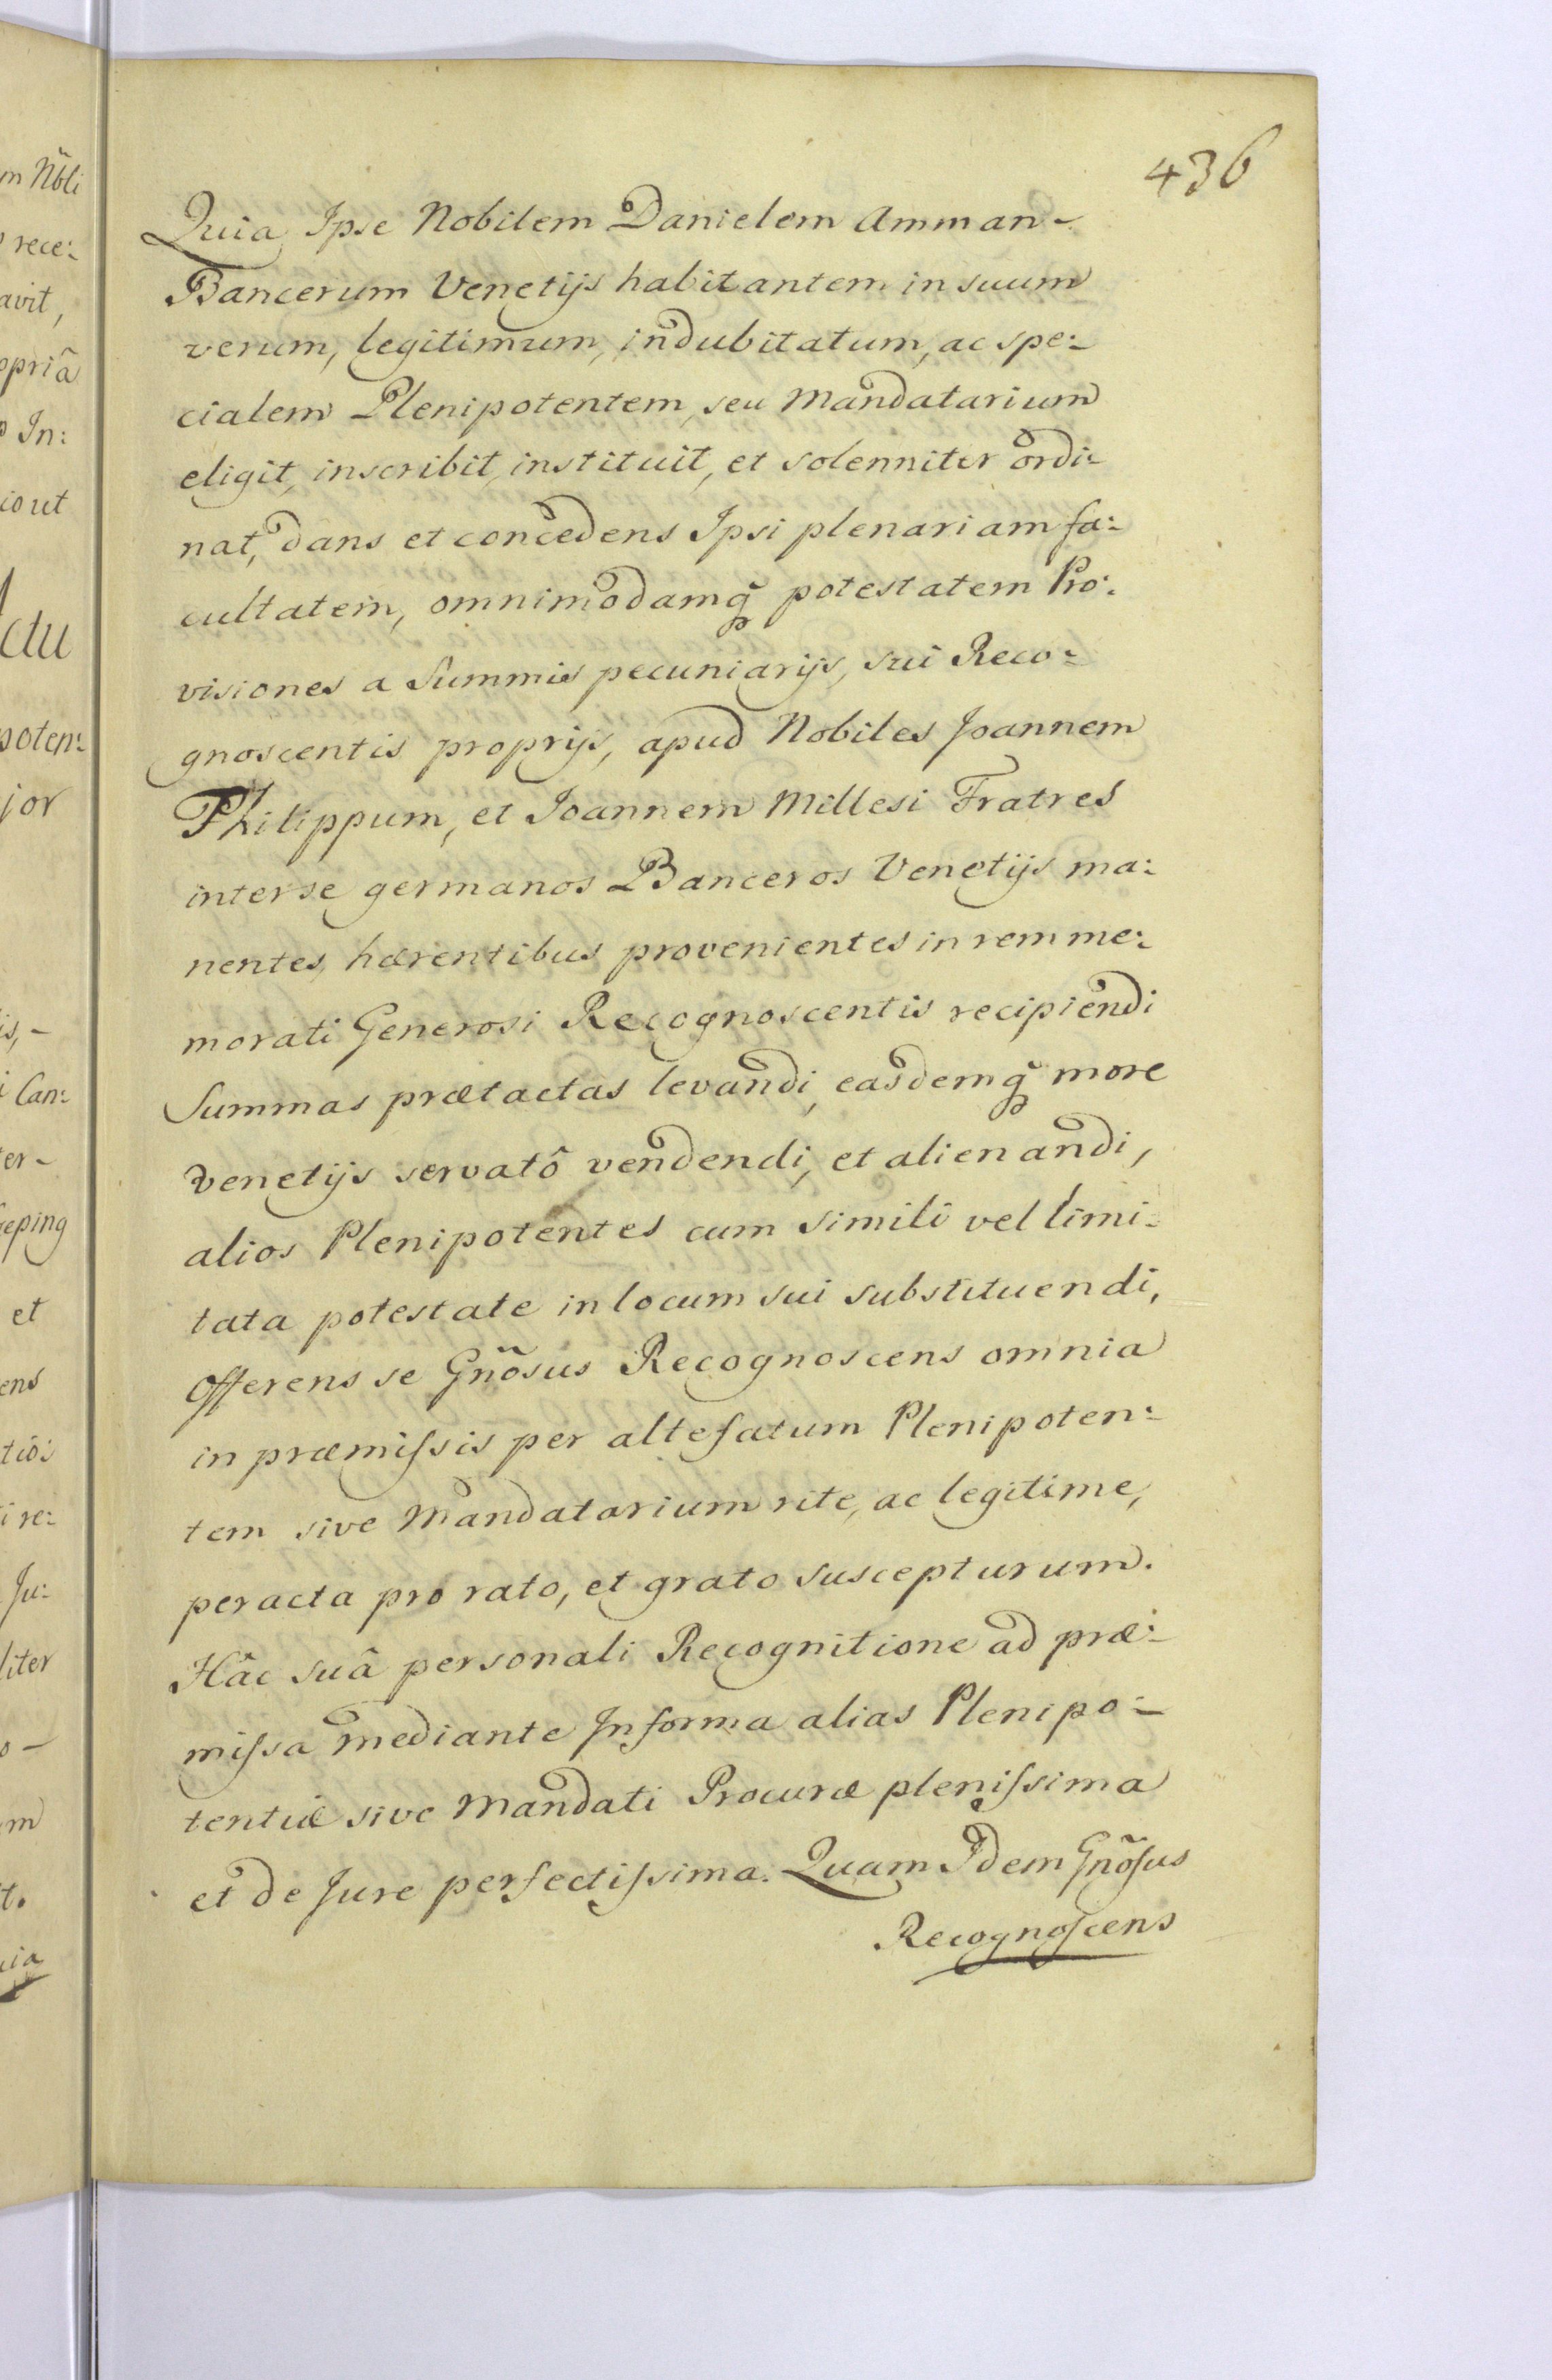 436
Quia Ipse Nobilem Danielem Amman-
Bancerum Venetijs habitantem in suum
verum, legitimum, indubitatum, ac spe:
cialem Plenipotentem, seu Mandatarium
eligit, inscribit, instituit, et solenniter ordi-
nat, dans et concedens Ipsi plenariam fa:
cultatem, omnimodamq̃ potestatem Pro:
visiones a Summis pecuniarijs, sui Reco:
gnoscentis proprijs, apud Nobiles Joannem
Philippum, et Joannem Millesi Fratres
inter se germanos Banceros Venetijs ma:
nentes, hærentibus provenientes in rem me:
morati Generosi Recognoscentis recipiendi
Summas prætactas levandi, easdemq̃ more
Venetijs servatô vendendi, et alienandi,
alios Plenipotentes cum simili vel limi:
tata potestate in locum sui substituendi,
Offerens se Gñosus Recognoscens omnia
in præmiſsis per altefatum Plenipoten:
tem sive Mandatarium rite, ac legitime,
peracta pro rato, et grato suscepturum.
Hâc suâ personali Recognitione ad præ:
miſsa mediante In forma alias Plenipo:
tentiæ sive Mandati Procuræ pleniſsima
et de Jure perfectiſsima. Quam Idem Gñoſus
Recognoſcens
m Nb̃li
rece:
avit,
opriâ
In:
co ut
ctu
poten:
jor
is, -
i Can:
ter-
et
ens
i re:
Ju:
liter
o -
m
t.
uia